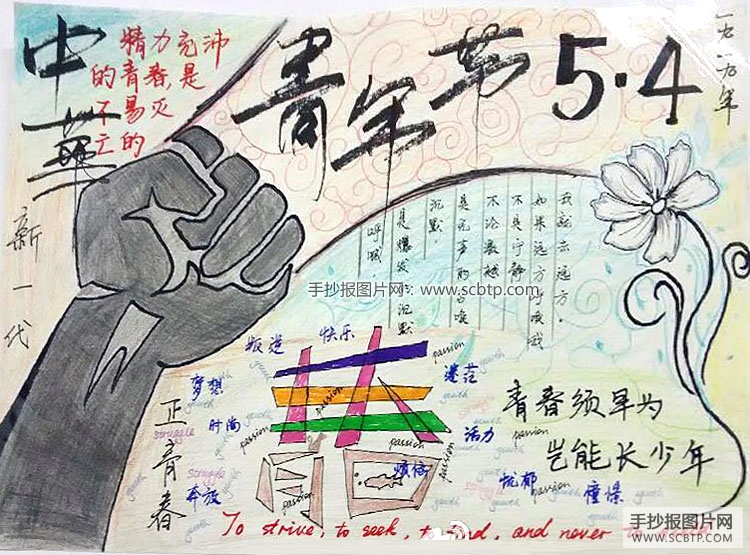 中華
精力充沛
的青春,是
不易灭
亡的
青年节 5·4
一九一九年
新一代
正青春
呼喊,
是爆发的沉默
沉默,
是无声的召唤
不论激越
不是宁静
如果远方呼喊我
我就去远方。
手抄报图片网
www.scbtp.com
叛逆
快乐
梦想
迷茫
时尚
活力
奔放
烦恼
忧郁
憧憬
passion
passion
passion
passion
passion
passion
passion
passion
youth
youth
youth
struggle
struggle
青春须早为
岂能长少年
To strive, to seek, to find, and never
手抄报图片网
WWW.SCBTP.COM